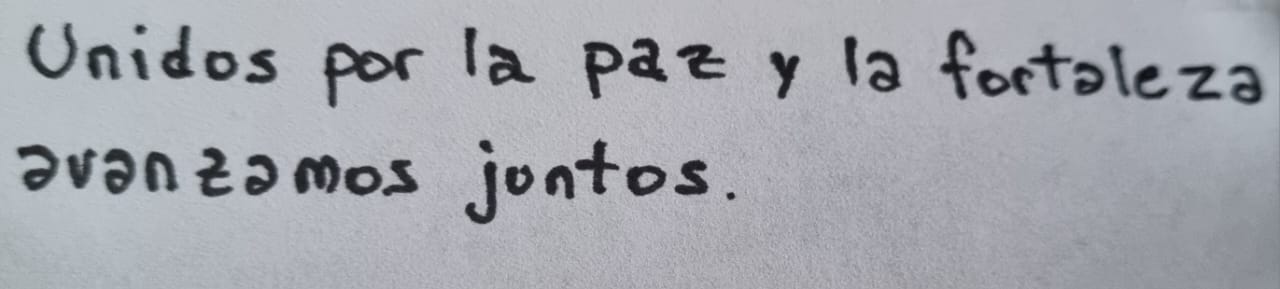 Unidos por la paz y la fortaleza
avanzamos juntos.